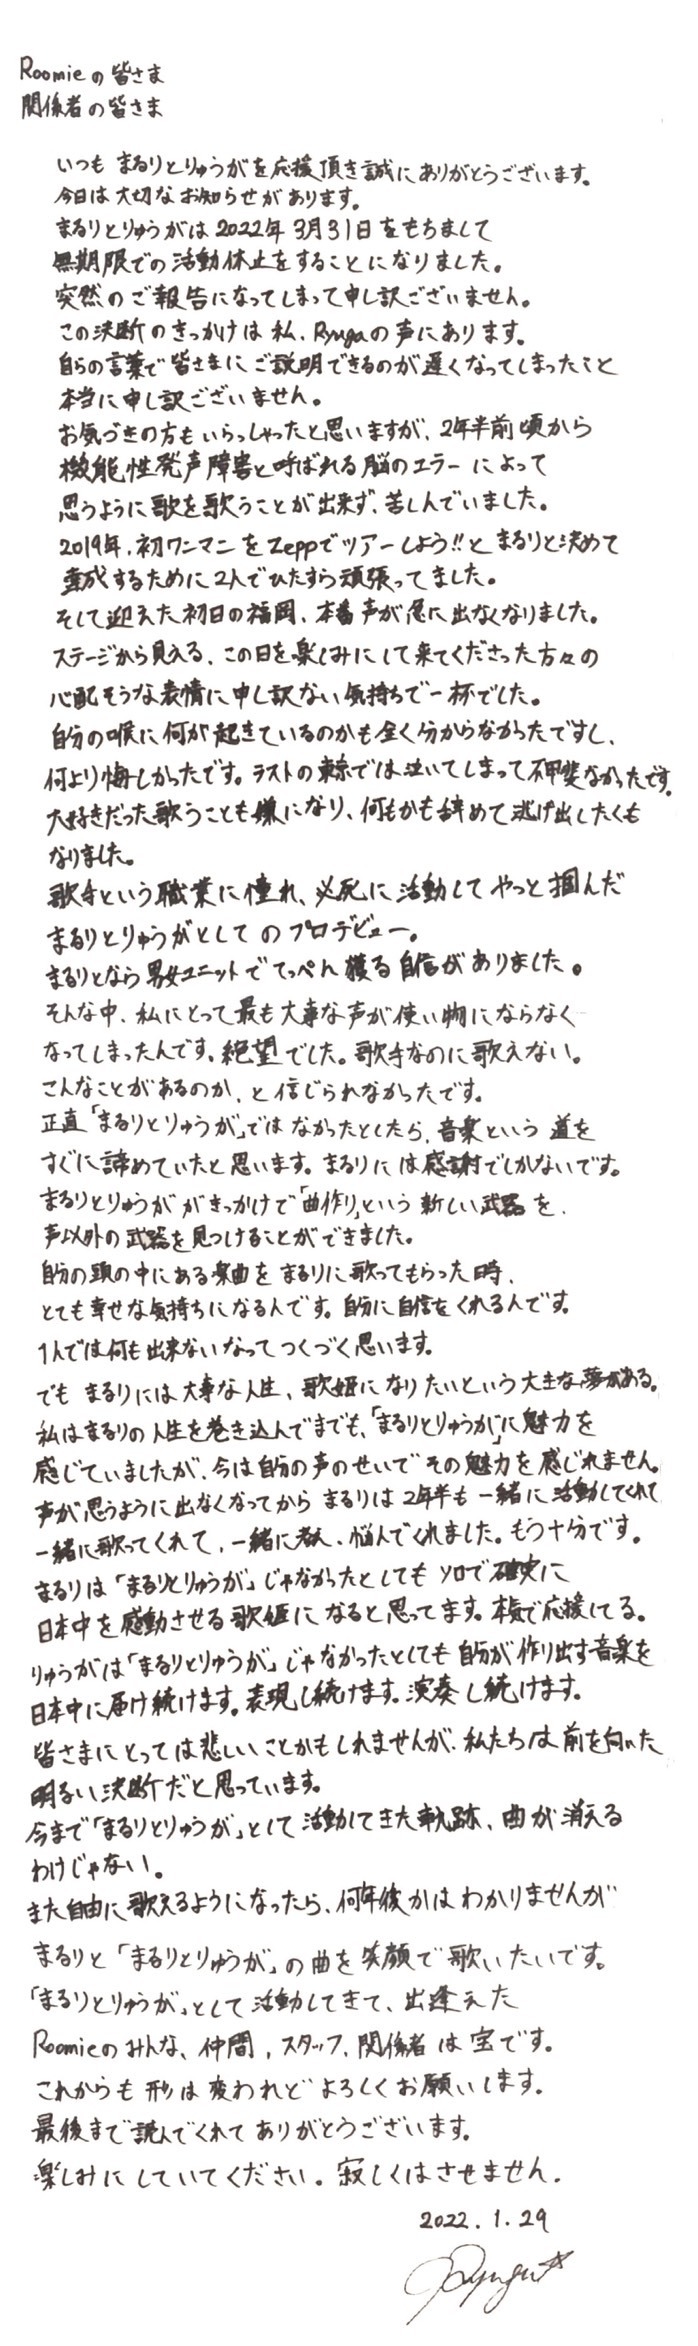 Roomieの皆さま
関係者の皆さま
いつも まるりとりゅうがを応援頂き誠にありがとうございます。
今日は大切なお知らせがあります。
まるりとりゅうがは2022年3月31日をもちまして
無期限での活動休止をすることになりました。
突然のご報告になってしまって申し訳ございません。
この決断のきっかけは私、Ryugaの声にあります。
自らの言葉で皆さまにご説明できるのが遅くなってしまったこと
本当に申し訳ございません。
お気づきの方もいらっしゃったと思いますが、2年半前頃から
機能性発声障害と呼ばれる脳のエラーによって
思うように歌を歌うことが出来ず、苦しんでいました。
2019年、初ワンマンをZeppでツアーしよう!!とまるりと決めて
達成するために2人でひたすら頑張ってました。
そして迎えた初日の福岡、本番声が急に出なくなりました。
ステージから見える、この日を楽しみにして来てくださった方々の
心配そうな表情に申し訳ない気持ちで一杯でした。
自分の喉に何が起きているのかも全く分からなかったですし、
何より悔しかったです。ラストの東京では泣いてしまって不甲斐なかったです。
大好きだった歌うことも嫌になり、何もかも辞めて逃げ出したくも
なりました。
歌手という職業に憧れ、必死に活動してやっと掴んだ
まるりとりゅうがとしてのプロデビュー。
まるりとなら男女ユニットでてっぺん獲る自信がありました。
そんな中、私にとって最も大事な声が使い物にならなく
なってしまったんです、絶望でした。歌手なのに歌えない。
こんなことがあるのか、と信じられなかったです。
正直「まるりとりゅうが」ではなかったとしたら、音楽という道を
すぐに諦めていたと思います。まるりには感謝でしかないです。
まるりとりゅうががきっかけで「曲作り」という新しい武器を、
声以外の武器を見つけることができました。
自分の頭の中にある楽曲をまるりに歌ってもらった時、
とても幸せな気持ちになるんです。自分に自信をくれる人です。
1人では何も出来ないなってつくづく思います。
でもまるりには大事な人生、歌姫になりたいという大きな夢がある。
私はまるりの人生を巻き込んでまでも、「まるりとりゅうが」に魅力を
感じていましたが、今は自分の声のせいでその魅力を感じれません。
声が思うように出なくなってからまるりは2年半も一緒に活動してくれて
一緒に歌ってくれて、一緒に考え、悩んでくれました。もう十分です。
まるりは「まるりとりゅうが」じゃなかったとしてもソロで確実に
日本中を感動させる歌姫になると思ってます。本気で応援してる。
りゅうがは「まるりとりゅうが」じゃなかったとしても自分が作り出す音楽を
日本中に届け続けます。表現し続けます。演奏し続けます。
皆さまにとっては悲しいことかもしれませんが、私たちは前を向いた
明るい決断だと思っています。
今まで「まるりとりゅうが」として活動してきた軌跡、曲が消える
わけじゃない。
また自由に歌えるようになったら、何年後かはわかりませんが
まるりと「まるりとりゅうが」の曲を笑顔で歌いたいです。
「まるりとりゅうが」として活動してきて、出逢えた
Roomieのみんな、仲間、スタッフ、関係者は宝です。
これからも形は変われどよろしくお願いします。
最後まで読んでくれてありがとうございます。
楽しみにしていてください。寂しくはさせません。
2022.1.29
Ryuga